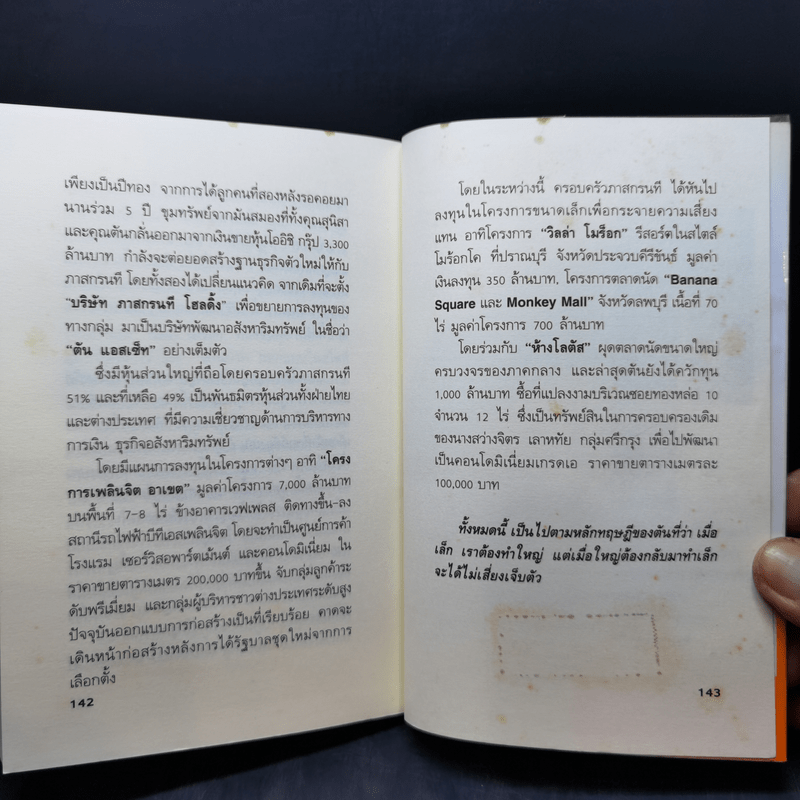 เพียงเป็นปีทอง จากการได้ลูกคนที่สองหลังรอคอยมา
นานร่วม 5 ปี ขุมทรัพย์จากมันสมองที่ทั้งคุณสุนิสา
และคุณตันกลั่นออกมาจากเงินขายหุ้นโออิชิ กรุ๊ป 3,300
ล้านบาท กำลังจะต่อยอดสร้างฐานธุรกิจตัวใหม่ให้กับ
ภาสกรนที โดยทั้งสองได้เปลี่ยนแนวคิด จากเดิมที่จะตั้ง
"บริษัท ภาสกรนที โฮลดิ้ง" เพื่อขยายการลงทุนของ
ทางกลุ่ม มาเป็นบริษัทพัฒนาอสังหาริมทรัพย์ ในชื่อว่า
"ตัน แอสเซ็ท" อย่างเต็มตัว
ซึ่งมีหุ้นส่วนใหญ่ที่ถือโดยครอบครัวภาสกรนที
51% และที่เหลือ 49% เป็นพันธมิตรหุ้นส่วนทั้งฝ่ายไทย
และต่างประเทศ ที่มีความเชี่ยวชาญด้านการบริหารทาง
การเงิน ธุรกิจอสังหาริมทรัพย์
โดยมีแผนการลงทุนในโครงการต่างๆ อาทิ "โครง
การเพลินจิต อาเขต" มูลค่าโครงการ 7,000 ล้านบาท
บนพื้นที่ 7-8 ไร่ ข้างอาคารเวฟเพลส ติดทางขึ้น-ลง
สถานีรถไฟฟ้าบีทีเอสเพลินจิต โดยจะทำเป็นศูนย์การค้า
โรงแรม เซอร์วิสอพาร์ตเม้นต์ และคอนโดมิเนี่ยม ใน
ราคาขายตารางเมตร 200,000 บาทขึ้น จับกลุ่มลูกค้าระ
ดับพรีเมี่ยม และกลุ่มผู้บริหารชาวต่างประเทศระดับสูง
ปัจจุบันออกแบบการก่อสร้างเป็นที่เรียบร้อย คาดจะ
เดินหน้าก่อสร้างหลังการได้รัฐบาลชุดใหม่จากการ
เลือกตั้ง
142
โดยในระหว่างนี้ ครอบครัวภาสกรนที ได้หันไป
ลงทุนในโครงการขนาดเล็กเพื่อกระจายความเสี่ยง
แทน อาทิโครงการ "วิลล่า โมร็อก" รีสอร์ตในสไตล์
โมร็อกโค ที่ปราณบุรี จังหวัดประจวบคีรีขันธ์ มูลค่า
เงินลงทุน 350 ล้านบาท, โครงการตลาดนัด "Banana
Square และ Monkey Mall" จังหวัดลพบุรี เนื้อที่ 70
ไร่ มูลค่าโครงการ 700 ล้านบาท
โดยร่วมกับ "ห้างโลตัส" ผุดตลาดนัดขนาดใหญ่
ครบวงจรของภาคกลาง และล่าสุดตันยังได้ควักทุน
1,000 ล้านบาท ซื้อที่แปลงงามบริเวณซอยทองหล่อ 10
จำนวน 12 ไร่ ซึ่งเป็นทรัพย์สินในการครอบครองเดิม
ของนางสว่างจิตร เลาหทัย กลุ่มศรีกรุง เพื่อไปพัฒนา
เป็นคอนโดมิเนี่ยมเกรดเอ ราคาขายตารางเมตรละ
100,000 บาท
ทั้งหมดนี้ เป็นไปตามหลักทฤษฎีของตันที่ว่า เมื่อ
เล็ก เราต้องทำใหญ่ แต่เมื่อใหญ่ต้องกลับมาทำเล็ก
จะได้ไม่เสี่ยงเจ็บตัว
143